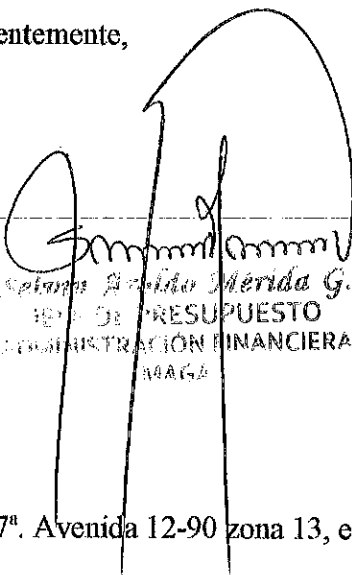 entemente,
Mérida G.
DE PRESUPUESTO
ADMINISTRACIÓN FINANCIERA
MAGA
7ª. Avenida 12-90 zona 13, e